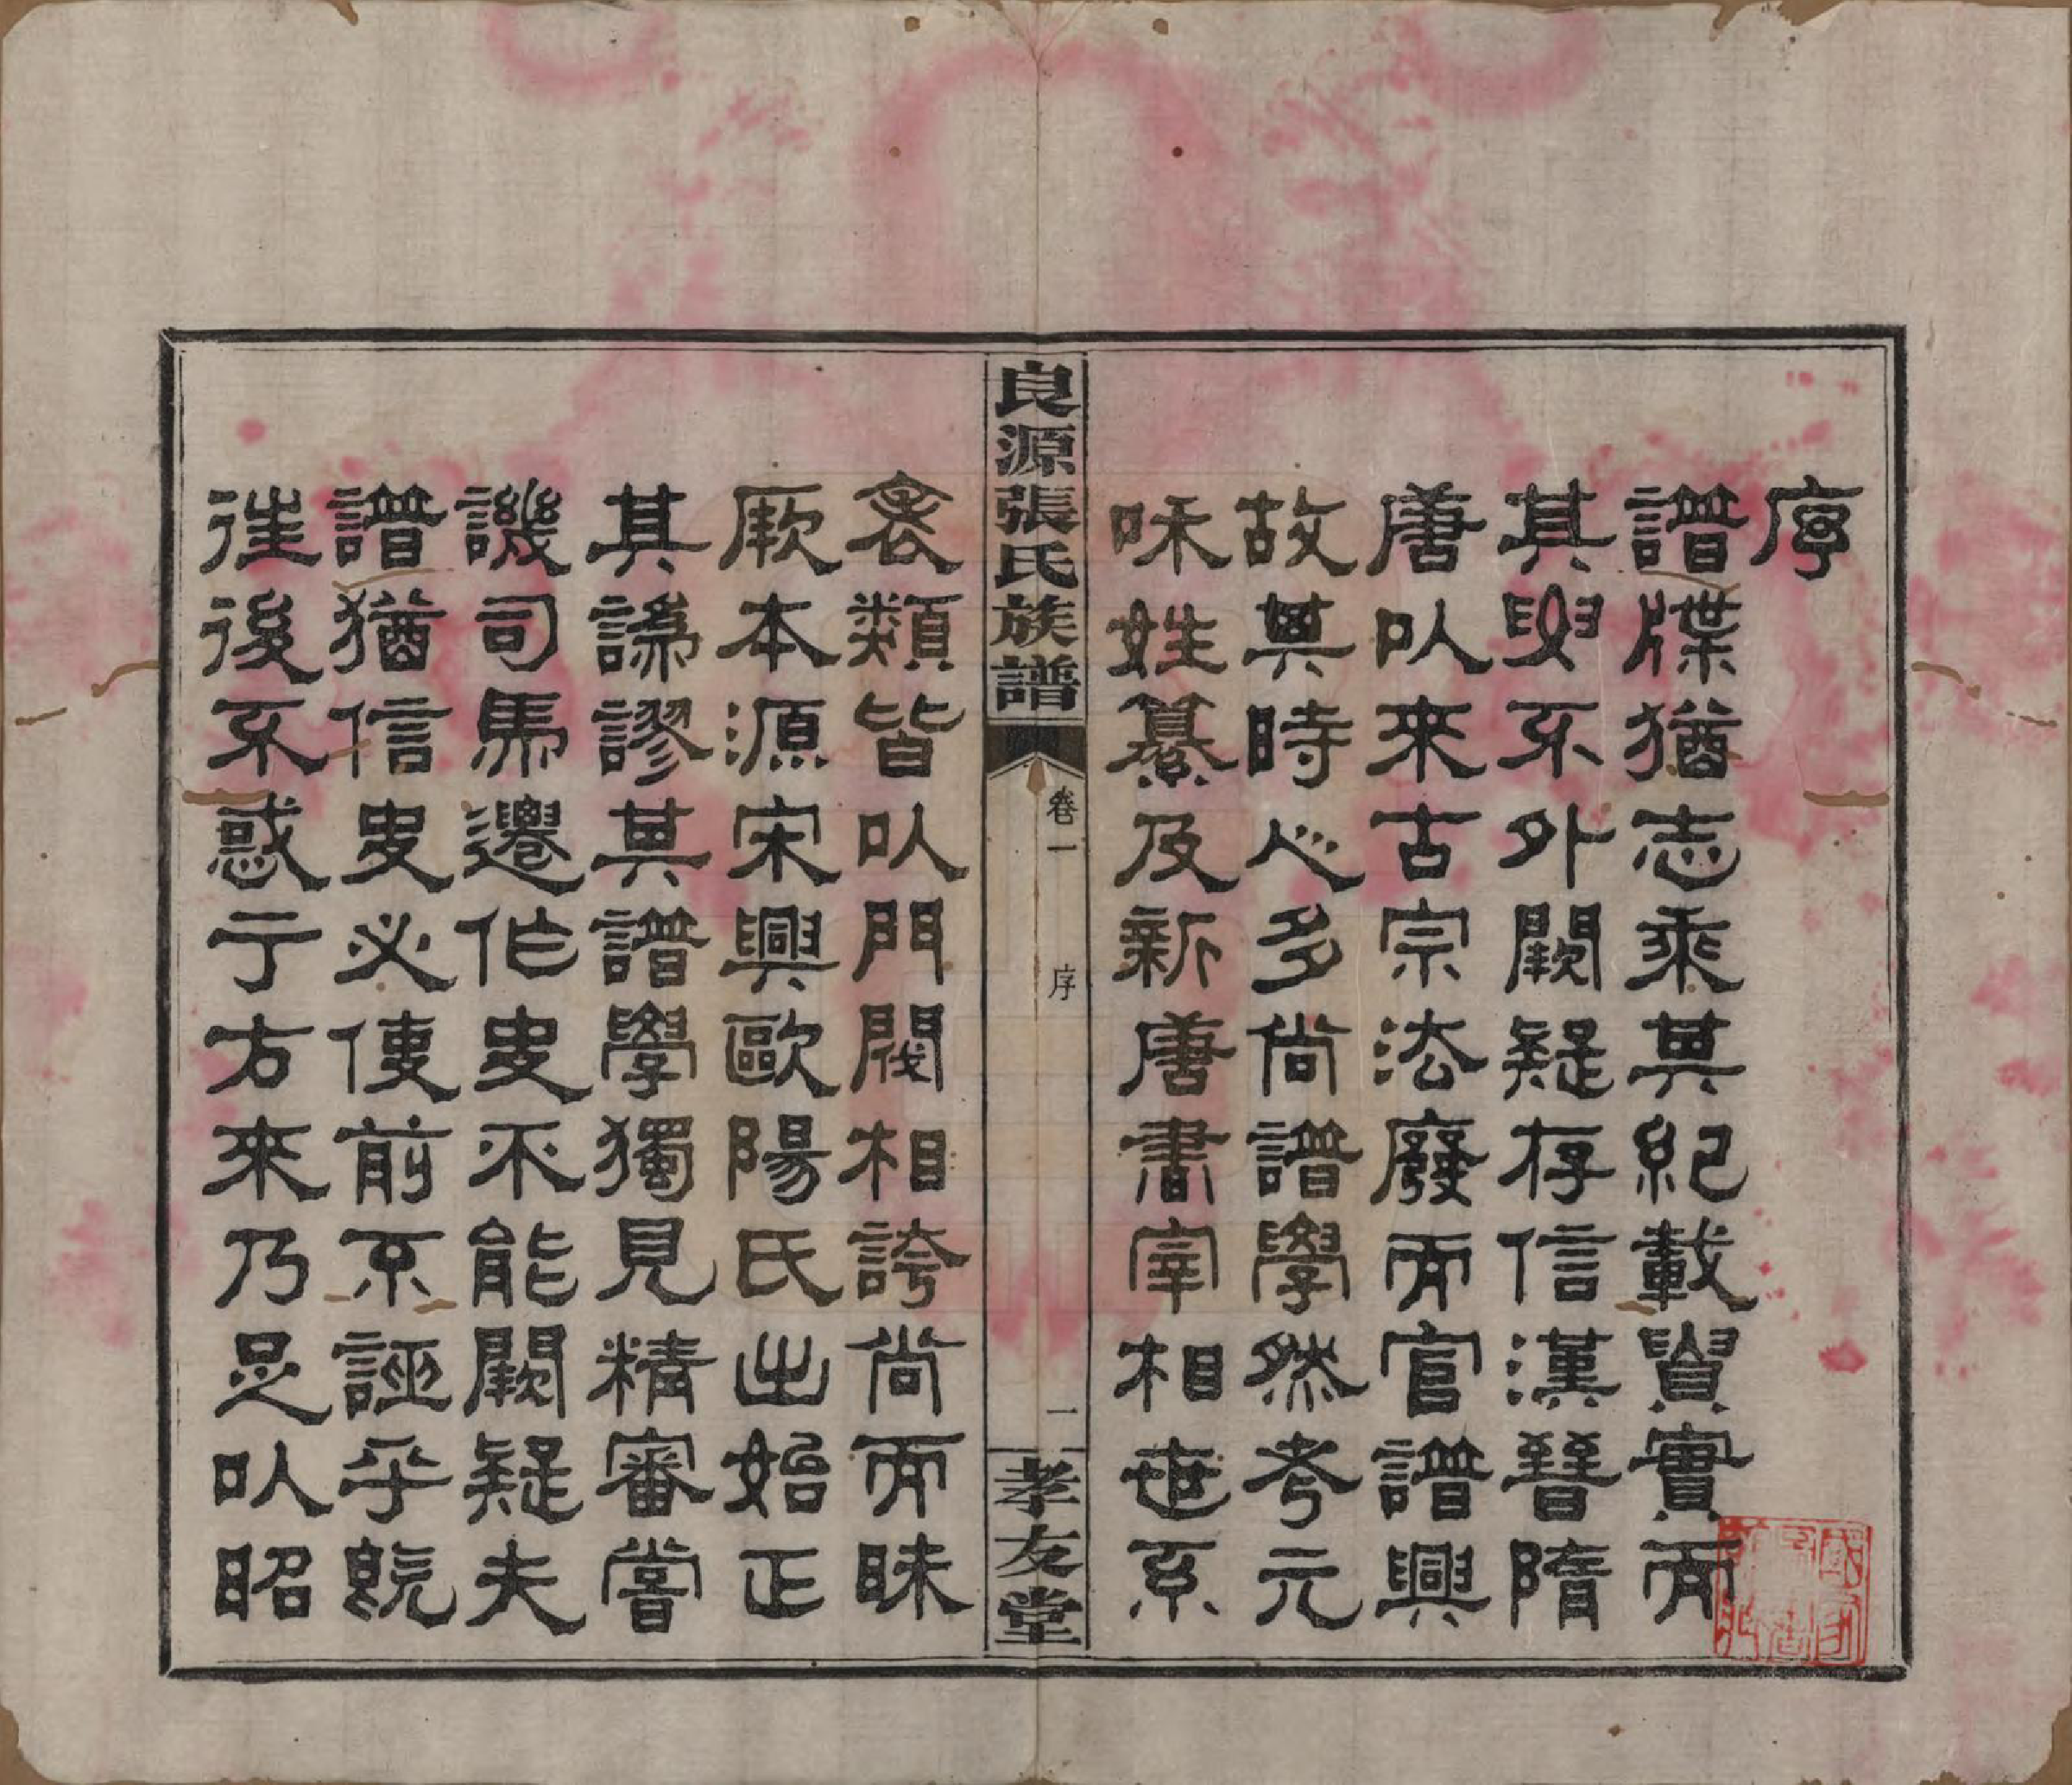 序
譜牒猶志乘其紀載貴實而
其要不外闕疑存信漢晉隋
唐以來古宗法廢而官譜興
故其時人多尚譜學然考元
和姓纂及新唐書宰相世系
良源張氏族譜 卷一 序 一 孝友堂
表類皆以門閥相誇尚而昧
厥本源宋興歐陽氏出始正
其譌謬其譜學獨見精審嘗
譏司馬遷作史不能闕疑夫
譜猶信史必使前不誣乎旣
往後不惑于方來乃足以昭